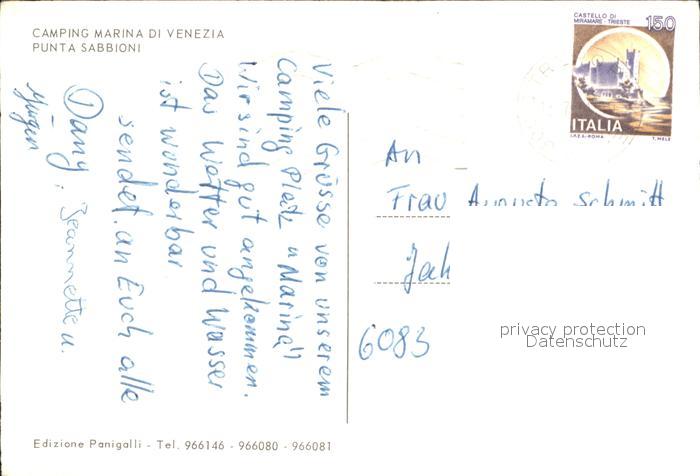 CAMPING MARINA DI VENEZIA
PUNTA SABBIONI
Viele Grüsse von unserem
Camping Platz "Marina"
Wir sind gut angekommen.
Das Wetter und Wasser
ist wonderbar.
sendet an Euch alle
Dany, Jeannette u.
Jürgen
CASTELLO DI
MIRAMARE - TRIESTE
150
ITALIA
I.P.Z.S.-ROMA
T. MELE
An
Frau Augusta Schmitt
6083
privacy protection
Datenschutz
Edizione Panigalli - Tel. 966146 - 966080 - 966081